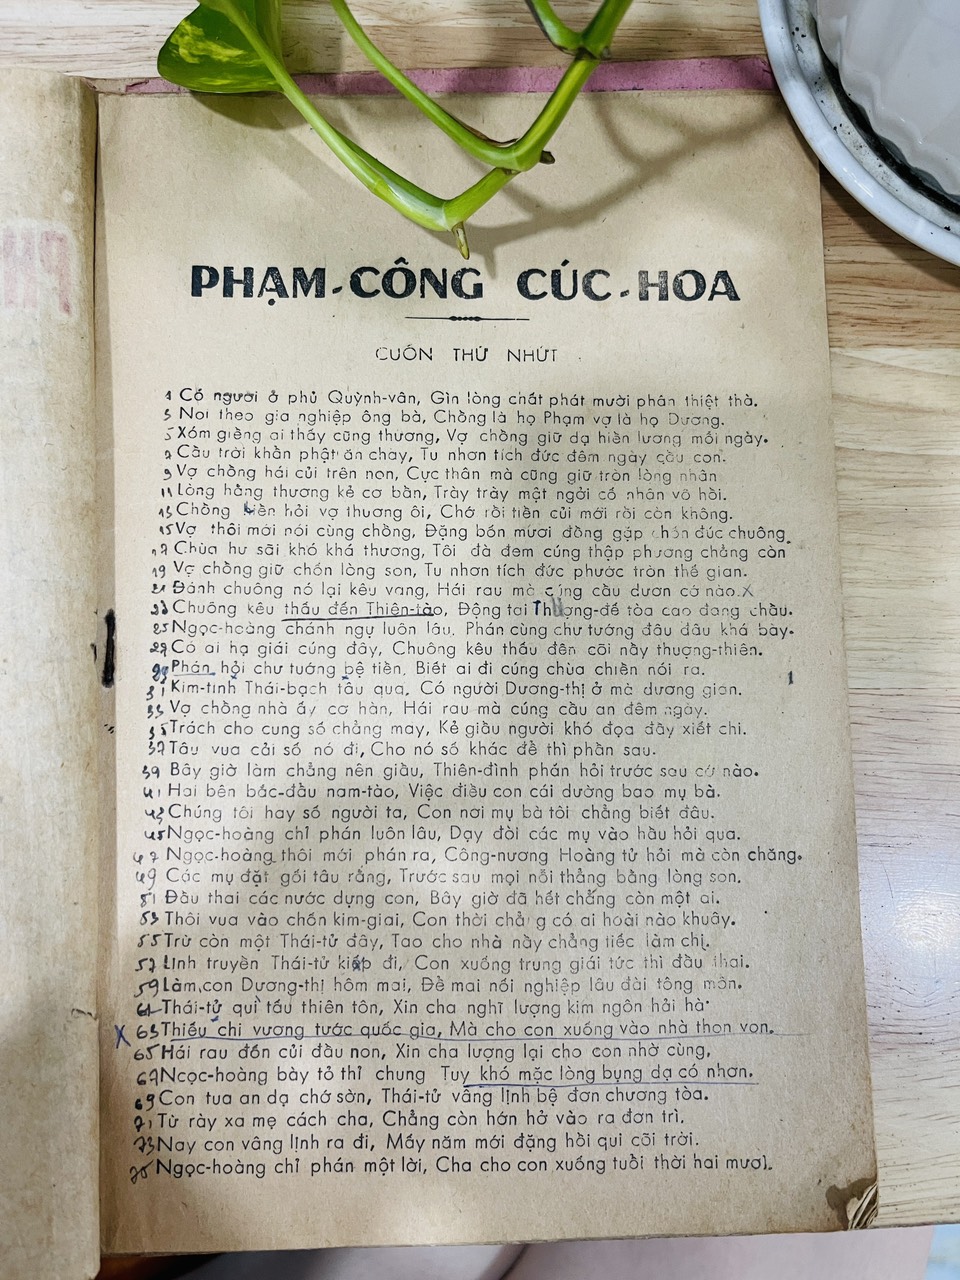 PHẠM-CÔNG CÚC-HOA
CUỐN THỨ NHỨT
1 Có người ở phủ Quỳnh-vân, Gìn lòng chất phát mười phân thiệt thà.
3 Noi theo gia nghiệp ông bà, Chồng là họ Phạm vợ là họ Dương.
5 Xóm giềng ai thấy cũng thương, Vợ chồng giữ dạ hiền lương mỗi ngày.
7 Cầu trời khẩn phật ăn chay, Tu nhơn tích đức đêm ngày cầu con.
9 Vợ chồng hái củi trên non, Cực thân mà cũng giữ tròn lòng nhân
11 Lòng hằng thương kẻ cơ bần, Trày trày mặt ngãi cố nhân vô hồi.
13 Chồng liền hỏi vợ thương ôi, Chớ rồi tiền củi mới rồi còn không.
15 Vợ thôi mới nói cùng chồng, Đặng bốn mươi đồng gặp chốn đúc chuông.
17 Chùa hư sãi khó khá thương, Tôi đà đem cúng thập phương chẳng còn
19 Vợ chồng giữ chốn lòng son, Tu nhơn tích đức phước tròn thế gian.
21 Đánh chuông nó lại kêu vang, Hái rau mà cúng cầu dươn cớ nào.X
23 Chuông kêu thấu đến Thiên-tào, Động tai Thượng-đế tòa cao đang chầu.
25 Ngọc-hoàng chánh ngự luôn lâu, Phán cùng chư tướng đâu đâu khá bày.
27 Có ai hạ giái cúng đây, Chuông kêu thấu đến cõi nầy thượng-thiên.
29 Phán hỏi chư tướng bệ tiền, Biết ai đi cúng chùa chiền nói ra.
31 Kim-tinh Thái-bạch tâu qua, Có người Dương-thị ở mà dương gian. 1
33 Vợ chồng nhà ấy cơ hàn, Hái rau mà cúng cầu an đêm ngày.
35 Trách cho cung số chẳng may, Kẻ giầu người khó đọa đầy xiết chi.
37 Tâu vua cải số nó đi, Cho nó số khác để thì phần sau.
39 Bây giờ làm chẳng nên giầu, Thiên-đình phán hỏi trước sau cớ nào.
41 Hai bên bắc-đẩu nam-tào, Việc điều con cái dường bao mụ bà.
43 Chúng tôi hay số người ta, Con nơi mụ bà tôi chẳng biết đâu.
45 Ngọc-hoàng chỉ phán luôn lâu, Dạy đòi các mụ vào hầu hỏi qua.
47 Ngọc-hoàng thôi mới phán ra, Công-nương Hoàng tử hỏi mà còn chăng.
49 Các mụ đặt gối tâu rằng, Trước sau mọi nỗi thẳng bằng lòng son.
51 Đầu thai các nước dựng con, Bây giờ đã hết chẳng còn một ai.
53 Thôi vua vào chốn kim-giai, Con thời chẳng có ai hoài nào khuây.
55 Trừ còn một Thái-tử đây, Tao cho nhà này chẳng tiếc làm chi.
57 Lịnh truyền Thái-tử kiếp đi, Con xuống trung giái tức thì đầu thai.
59 Làm con Dương-thị hôm mai, Để mai nối nghiệp lâu dài tông môn.
61 Thái-tử quì tấu thiên tôn, Xin cha nghĩ lượng kim ngôn hải hà
X 63 Thiếu chi vương tước quốc gia, Mà cho con xuống vào nhà thon von.
65 Hái rau đốn củi đầu non, Xin cha lượng lại cho con nhờ cùng,
67 Ngọc-hoàng bày tỏ thỉ chung Tuy khó mặc lòng bụng dạ có nhơn.
69 Con tua an dạ chớ sờn, Thái-tử vâng lịnh bệ đơn chương tòa.
71 Từ rày xa mẹ cách cha, Chẳng còn hớn hở vào ra đơn trì.
73 Nay con vâng lịnh ra đi, Mấy năm mới đặng hồi qui cõi trời.
75 Ngọc-hoàng chỉ phán một lời, Cha cho con xuống tuổi thời hai mươi.